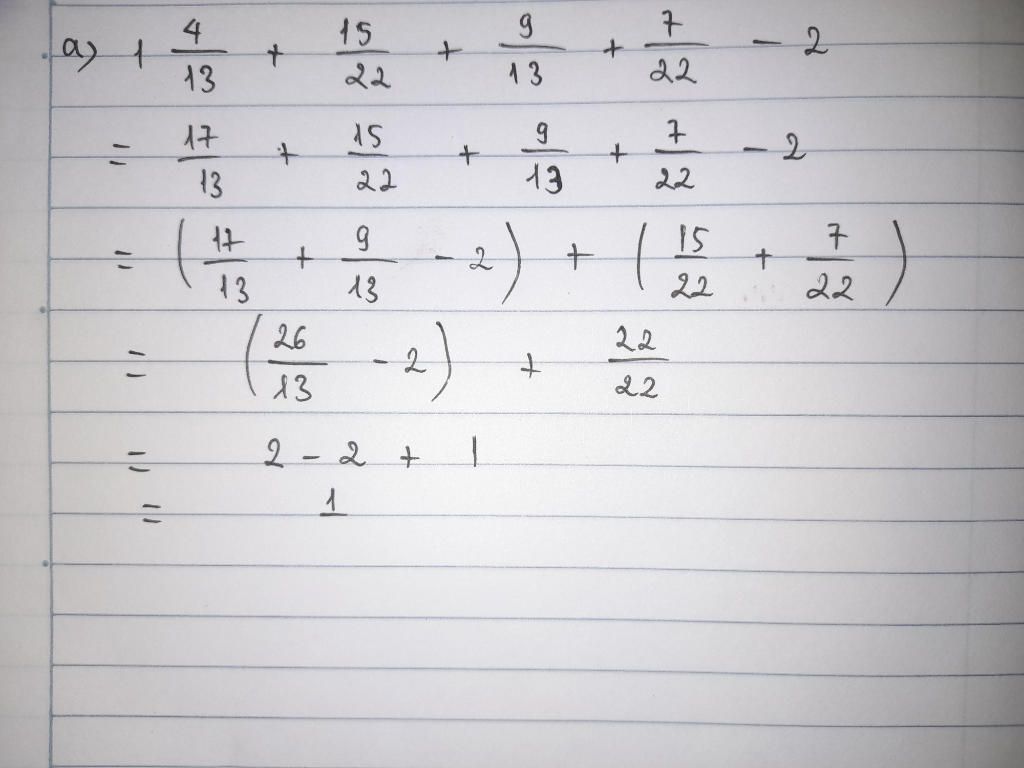 a) 1 4/13 + 15/22 + 9/13 + 7/22 - 2
= 17/13 + 15/22 + 9/13 + 7/22 - 2
= (17/13 + 9/13 - 2) + (15/22 + 7/22)
= (26/13 - 2) + 22/22
= 2 - 2 + 1
= 1